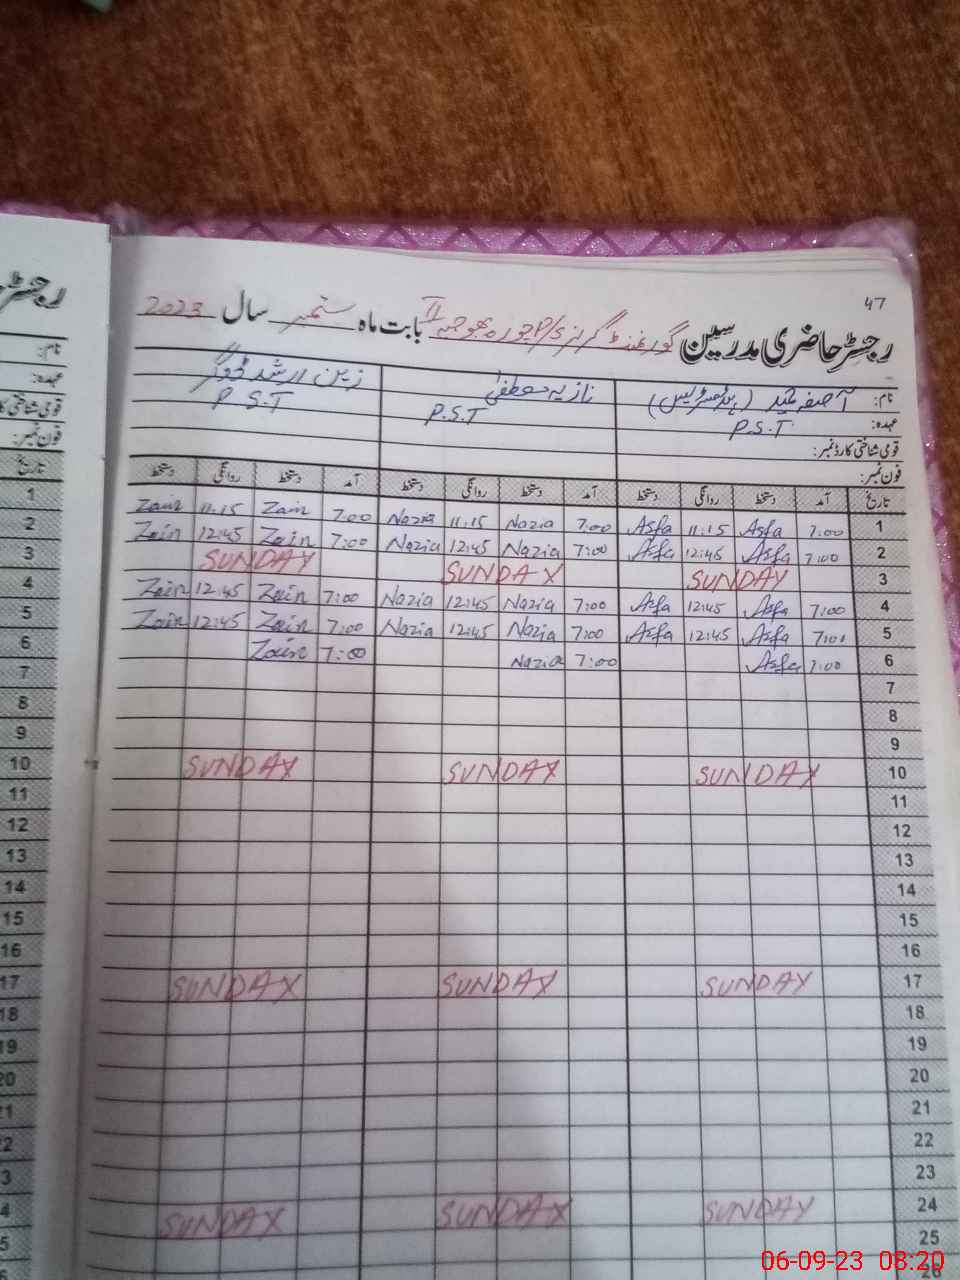 47
رجسٹر حاضری مدرسین گورنمنٹ گرلز P/S چورہ بھوجہ II بابت ماہ ستمبر سال 2023
نام: آصفہ (ہیڈمسٹریس) نازیہ مصطفیٰ زین ارشد
عہدہ: P.S.T P.S.T P.S.T
قومی شناختی کارڈ نمبر:
فون نمبر:
تاریخ آمد دستخط روانگی دستخط آمد دستخط روانگی دستخط آمد دستخط روانگی دستخط
1 7:00 Asfa 11:15 Asfa 7:00 Nazia 11:15 Nazia 7:00 Zain 11:15 Zain
2 7:00 Asfa 12:45 Asfa 7:00 Nazia 12:45 Nazia 7:00 Zain 12:45 Zain
3 SUNDAY SUNDAY SUNDAY
4 7:00 Asfa 12:45 Asfa 7:00 Nazia 12:45 Nazia 7:00 Zain 12:45 Zain
5 7:00 Asfa 12:45 Asfa 7:00 Nazia 12:45 Nazia 7:00 Zain 12:45 Zain
6 7:00 Asfa 7:00 Nazia 7:00 Zain
7
8
9
10 SUNDAY SUNDAY SUNDAY
11
12
13
14
15
16
17 SUNDAY SUNDAY SUNDAY
18
19
20
21
22
23
24 SUNDAY SUNDAY SUNDAY
25
26
رجسٹر
نام:
عہدہ:
قومی شناختی
فون نمبر:
تاریخ
1
2
3
4
5
6
7
8
9
10
11
12
13
14
15
16
17
18
19
20
21
22
3
4
5
06-09-23 08:20